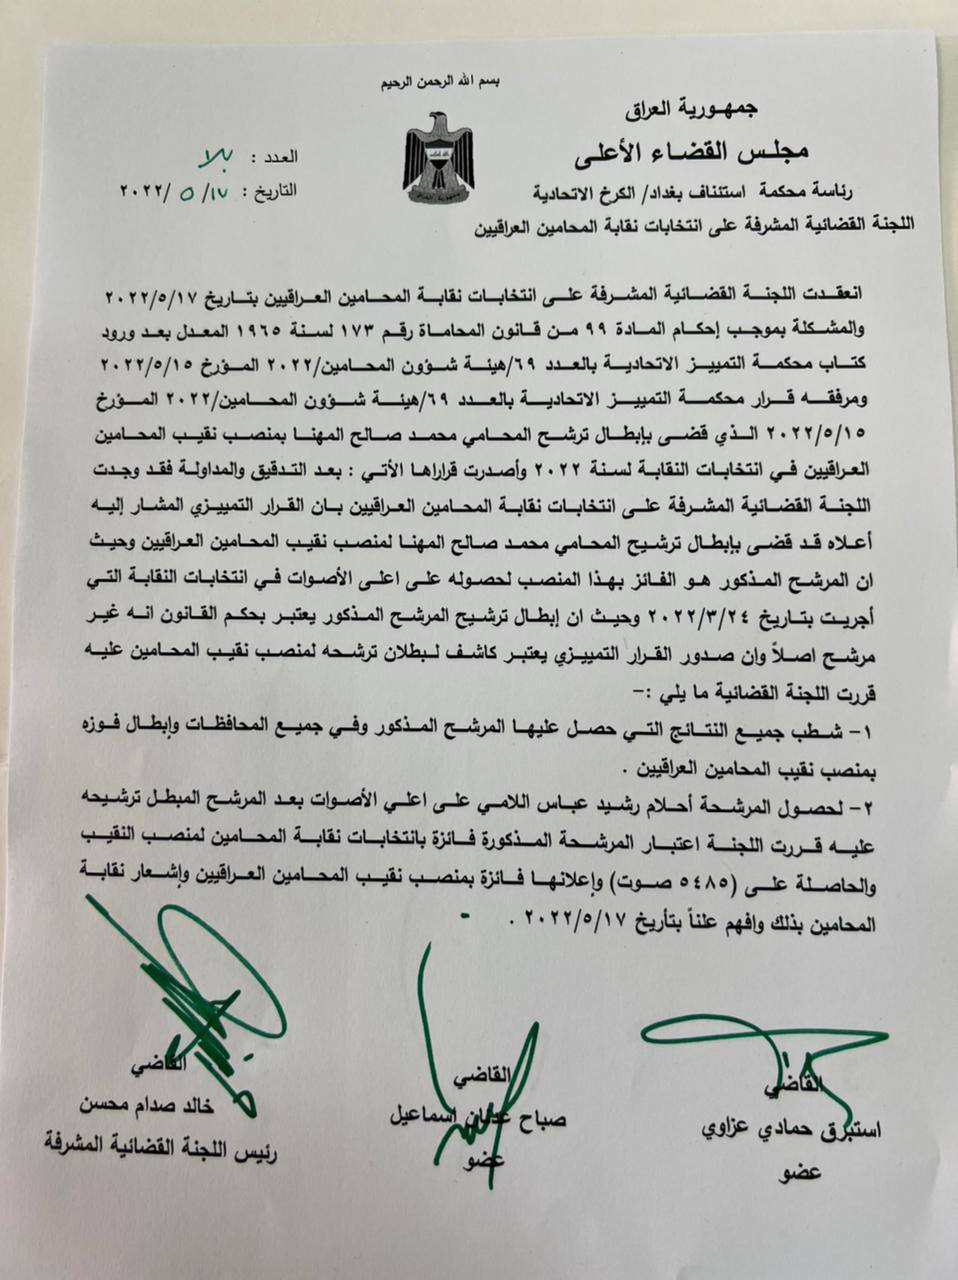 بسم الله الرحمن الرحيم
جمهورية العراق
مجلس القضاء الأعلى
رئاسة محكمة استئناف بغداد/ الكرخ الاتحادية
اللجنة القضائية المشرفة على انتخابات نقابة المحامين العراقيين
العدد : بلا
التاريخ : ١٧/ ٥ /٢٠٢٢
انعقدت اللجنة القضائية المشرفة على انتخابات نقابة المحامين العراقيين بتاريخ ٢٠٢٢/٥/١٧
والمشكلة بموجب إحكام المادة ٩٩ من قانون المحاماة رقم ١٧٣ لسنة ١٩٦٥ المعدل بعد ورود
كتاب محكمة التمييز الاتحادية بالعدد ٦٩/هيئة شؤون المحامين/٢٠٢٢ المؤرخ ٢٠٢٢/٥/١٥
ومرفقه قرار محكمة التمييز الاتحادية بالعدد ٦٩/هيئة شؤون المحامين/٢٠٢٢ المؤرخ
٢٠٢٢/٥/١٥ الذي قضى بإبطال ترشح المحامي محمد صالح المهنا بمنصب نقيب المحامين
العراقيين في انتخابات النقابة لسنة ٢٠٢٢ وأصدرت قراراها الأتي : بعد التدقيق والمداولة فقد وجدت
اللجنة القضائية المشرفة على انتخابات نقابة المحامين العراقيين بان القرار التمييزي المشار إليه
أعلاه قد قضى بإبطال ترشيح المحامي محمد صالح المهنا لمنصب نقيب المحامين العراقيين وحيث
ان المرشح المذكور هو الفائز بهذا المنصب لحصوله على اعلى الأصوات في انتخابات النقابة التي
أجريت بتاريخ ٢٠٢٢/٣/٢٤ وحيث ان إبطال ترشيح المرشح المذكور يعتبر بحكم القانون انه غير
مرشح اصلاً وان صدور القرار التمييزي يعتبر كاشف لبطلان ترشحه لمنصب نقيب المحامين عليه
قررت اللجنة القضائية ما يلي :-
١- شطب جميع النتائج التي حصل عليها المرشح المذكور وفي جميع المحافظات وإبطال فوزه
بمنصب نقيب المحامين العراقيين .
٢- لحصول المرشحة أحلام رشيد عباس اللامي على اعلي الأصوات بعد المرشح المبطل ترشيحه
عليه قررت اللجنة اعتبار المرشحة المذكورة فائزة بانتخابات نقابة المحامين لمنصب النقيب
والحاصلة على (٥٤٨٥ صوت) وإعلانها فائزة بمنصب نقيب المحامين العراقيين وإشعار نقابة
المحامين بذلك وافهم علناً بتأريخ ٢٠٢٢/٥/١٧ .
القاضي
استبرق حمادي عزاوي
عضو
القاضي
صباح عدنان اسماعيل
عضو
القاضي
خالد صدام محسن
رئيس اللجنة القضائية المشرفة